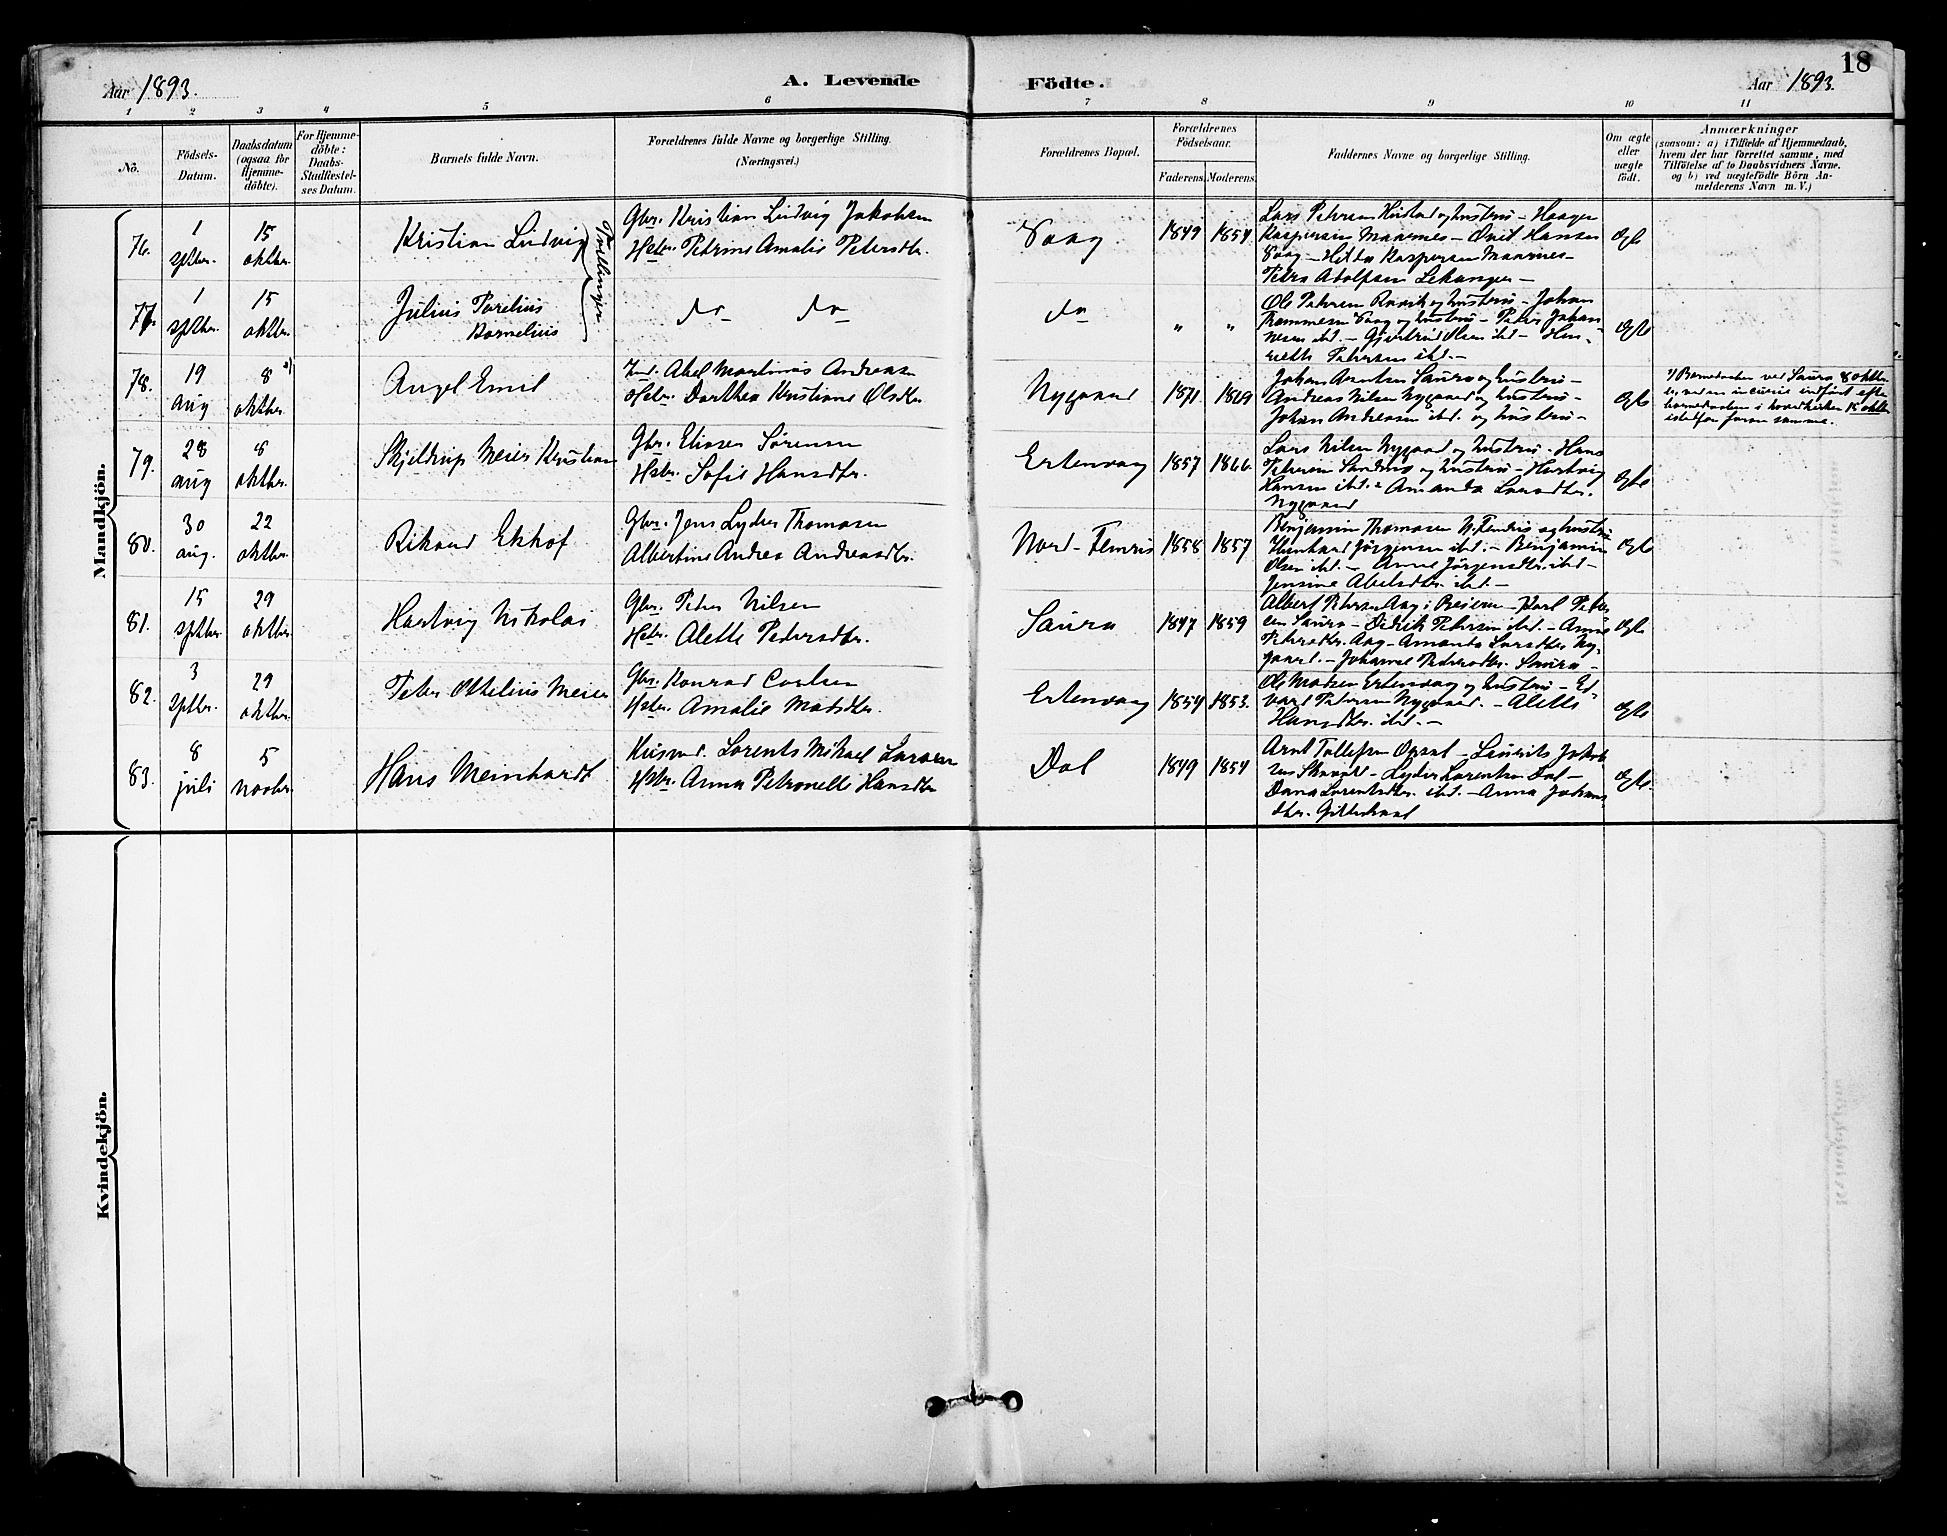 Aar 1893.
A. Levende Födte.
Aar 1893.
18
1 2 3 4 5 6 7 8 9 10 11
No.
Födsels-Datum.
Daabsdatum (ogsaa for Hjemme-döbte).
For Hjemme-döbte: Daabs-Stadfæstel-ses Datum.
Barnets fulde Navn.
Forældrenes fulde Navne og borgerlige Stilling.
(Næringsvei.)
Forældrenes Bopæl.
Forældrenes Födselsaar.
Faderens. Moderens.
Faddernes Navne og borgerlige Stilling.
Om ægte eller uægte födt.
Anmærkninger
(saasom: a) i Tilfælde af Hjemmedaab, hvem der har forrettet samme, med Tilföielse af to Daabsvidners Navne. og b) ved uægtefödte Börn An-melderens Navn m. V.)
Mandkjön.
76. 1 sptbr. 15 oktbr. Kristian Ludvig
Gbr. Kristian Ludvig Jakobsen
Hstr. Petrine Amalie Petersdtr.
Vaag 1849 1854
Lars Petersen Hustad og hustru - Haagen
Kaspersen Maarnes - Qvit Hansen
Vaag - Hilda Kaspersen Maarnes -
Petra Adolfsen Lekanger -
ægte
Tvillinger
77. 1 sptbr. 15 oktbr. Julius Parelius Kornelius
do do do " "
Ole Petersen Ravik og hustru - Johan
Vaag og hustru - Petra Johan-
nesen ibd. - Gjertrud Olsen ibd. - Hen-
riette Petersen ibd. -
ægte
78. 19 aug 8 oktbr. a) Angel Emil
Ind. Abel Martinus Andreasen
Hstr. Dorthea Kristiane Olsdtr.
Nygaard 1871 1869
Johan Arntsen Saura og hustru -
Andreas Nilsen Nygaard og hustru -
Johan Andreasen ibd. og hustru -
ægte
a) Barnedaaben ved Saura 8 oktbr.
er, ved en incurie indført efter
barnedaaben i hovedkirken 15 oktbr.
istedfor foran samme.
79. 28 aug 8 oktbr. Skjeldrup Meier Kristian
Gbr. Elias Sørensen
Hstr. Sofie Hansdtr.
Ertenvaag 1857 1866.
Lars Nilsen Nygaard og hustru - Hans
Petersen Sandnes og hustru - Hartvig
Hansen ibd. - Amanda Larsdtr.
Nygaard
ægte
80. 30 aug. 22 oktbr. Rikard Ekhof
Gbr. Jens Lyder Thomasen
Albertine Andrea Andreasdtr.
Nord-Femris 1858 1857
Benjamin Thomasen N. Femris og hustru
Jørgensen ibd. - Benjamin
Olsen ibd. - Anne Jørgensdtr. ibd -
Jensine Abelsdtr. ibd. -
ægte
81. 15 sptbr. 29 oktbr. Hartvig Nikolai
Gbr. Peter Nilsen
Hstr. Alette Pedersdtr.
Saura 1847 1859
Albert Petersen Aag i Beieren - Karl Peter
sen Saura - Didrik Petersen ibd. - Anne
Petersdtr. Aag - Amanda Larsdtr. Ny-
gaard. - Johanne Pedersdtr. Saura -
ægte
82. 3 sptbr. 29 oktbr. Peter Othelius Meier
Gbr. Konrad Carlsen
Hstr. Amalie Madsdtr.
Ertenvaag 1854 1853.
Ole Madsen Ertenvaag og hustru - Ed-
vard Petersen Nygaard. - Alette
Hansdtr. ibd. -
ægte
83. 8 juli 5 novbr. Hans Meinhardt
Husmd. Lorents Mikael Larsen
Hstr. Anna Petronelle Hansdtr
Dal 1849 1854
Arnt Tollefsen Opsal - Laurits Jakob
sen - Lyder Lorentsen Dal -
Dana Lorentsdtr. ibd. - Anna Johans
dtr. Gildeskaal
ægte.
Kvindekjön.